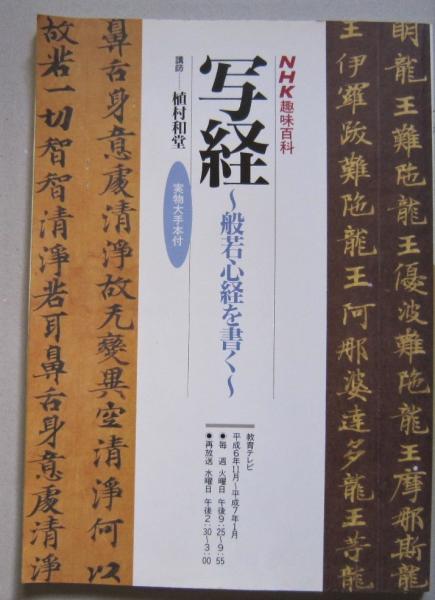 明龍王難陁龍王優波難陁龍王摩那斯龍
王伊羅跋難陁龍王阿那婆達多龍王等龍
NHK趣味百科
写経
〜般若心経を書く〜
講師 植村和堂
実物大手本付
教育テレビ
平成6年11月〜平成7年1月
●毎 週 火曜日 午後9:25〜9:55
●再放送 水曜日 午後2:30〜3:00
鼻舌身意處清淨故无變異空清淨何以
故若一切智智清淨若耳鼻舌身意處清淨